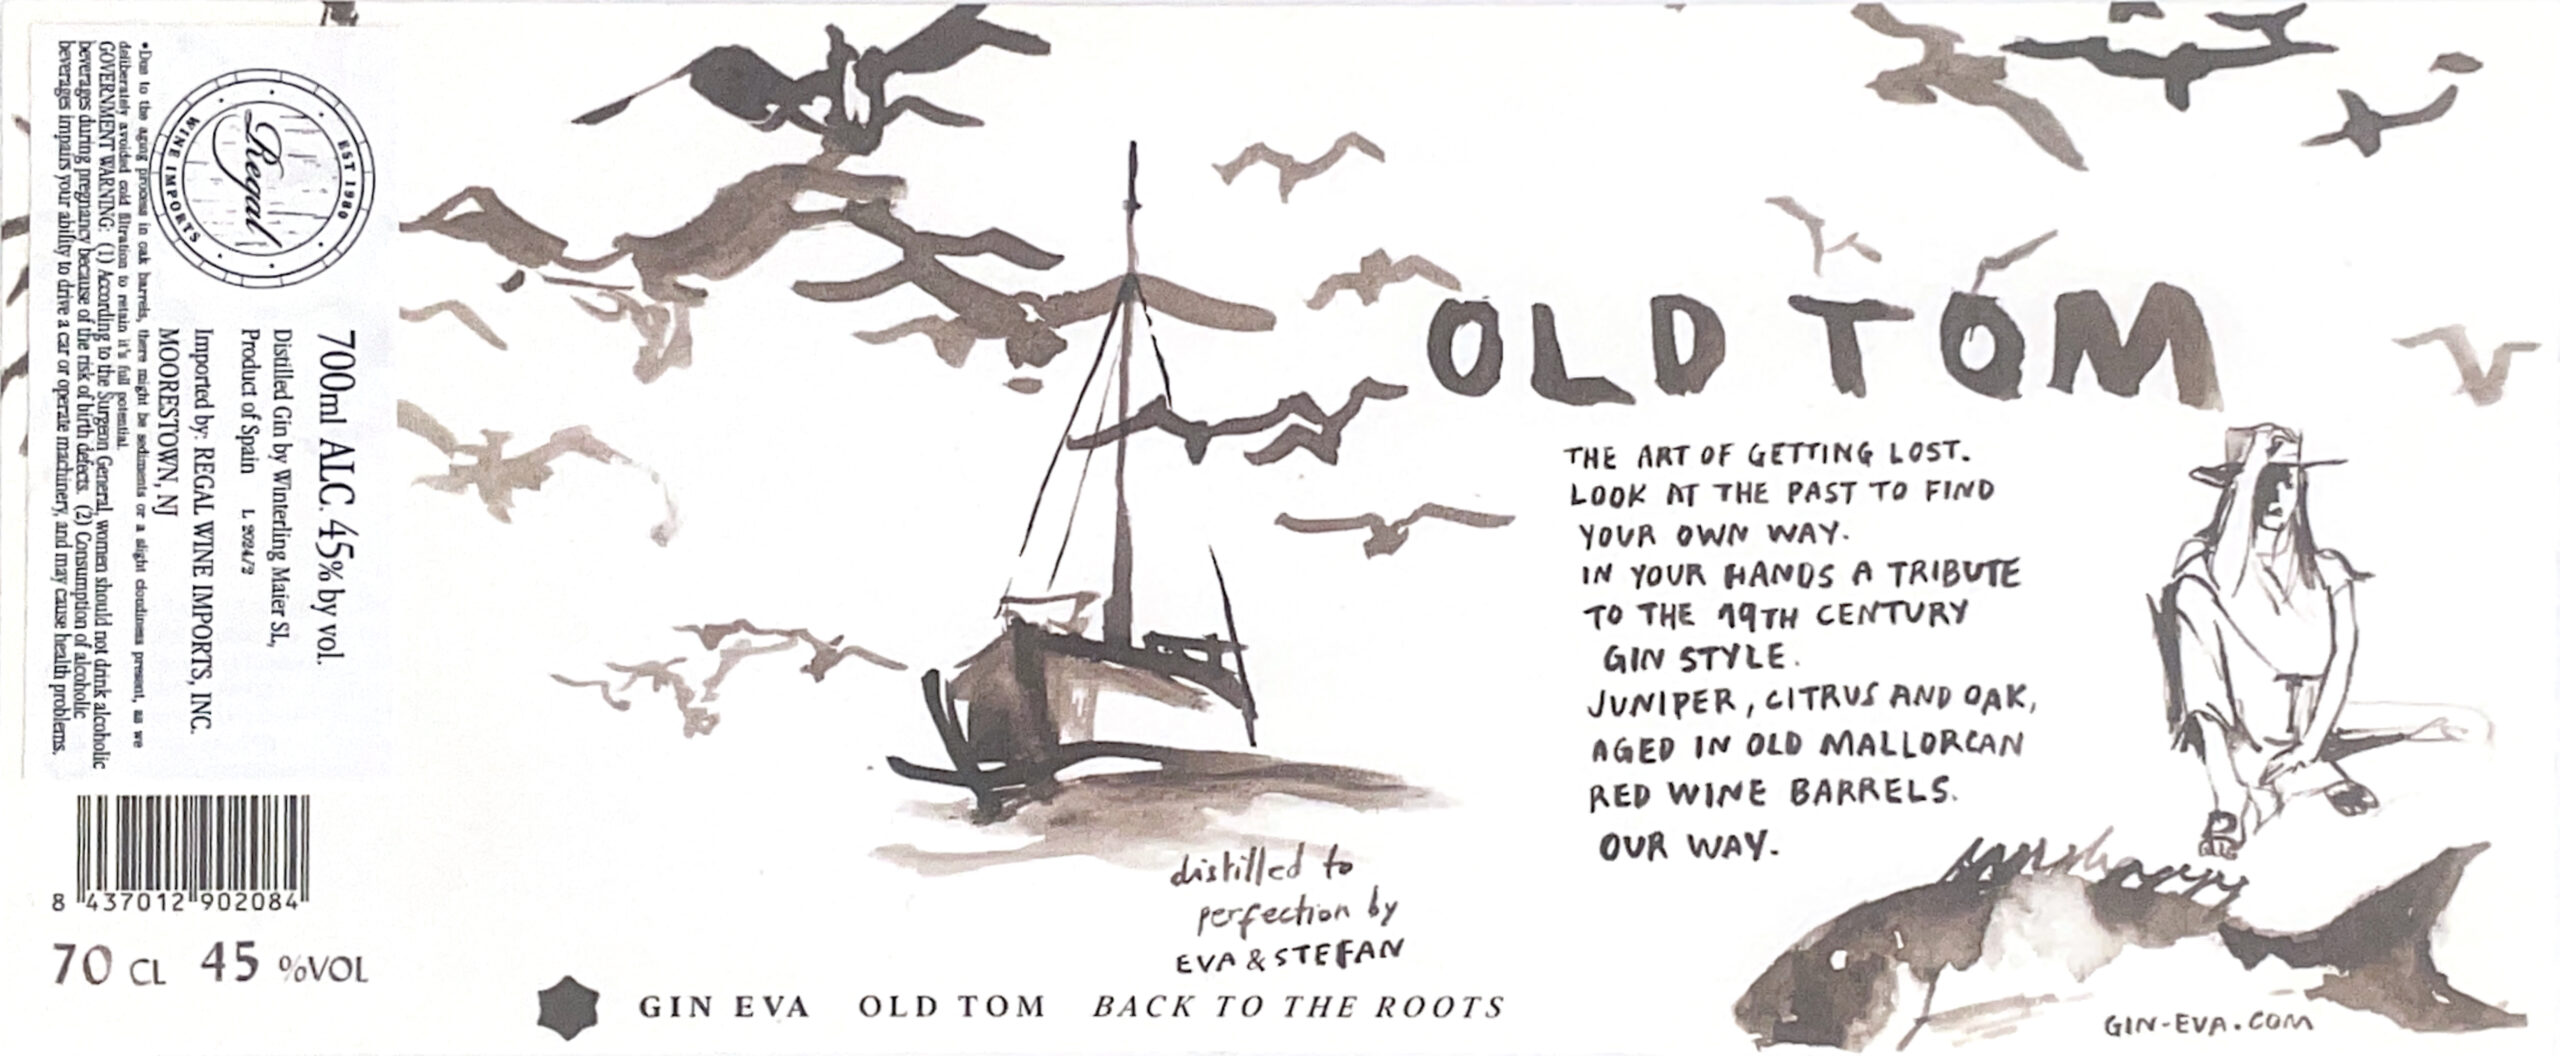 Regal
EST 1980
WINE IMPORTS
700ml ALC. 45% by vol.
Distilled Gin by Winterling Maier SL,
Product of Spain L 2024/2
Imported by: REGAL WINE IMPORTS, INC.
MOORESTOWN, NJ
•Due to the aging process in oak barrels, there might be sediments or a slight cloudiness present, as we
deliberately avoided cold filtration to retain it's full potential.
GOVERNMENT WARNING: (1) According to the Surgeon General, women should not drink alcoholic
beverages during pregnancy because of the risk of birth defects. (2) Consumption of alcoholic
beverages impairs your ability to drive a car or operate machinery, and may cause health problems.
8 437012 902084
70 CL 45 %VOL
distilled to
perfection by
EVA & STEFAN
GIN EVA OLD TOM BACK TO THE ROOTS
OLD TOM
THE ART OF GETTING LOST.
LOOK AT THE PAST TO FIND
YOUR OWN WAY.
IN YOUR HANDS A TRIBUTE
TO THE 19TH CENTURY
GIN STYLE.
JUNIPER, CITRUS AND OAK,
AGED IN OLD MALLORCAN
RED WINE BARRELS.
OUR WAY.
GIN-EVA.COM